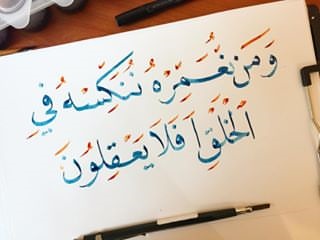 وَمَن نُّعَمِّرْهُ نُنَكِّسْهُ فِي
الْخَلْقِ أَفَلَا يَعْقِلُونَ